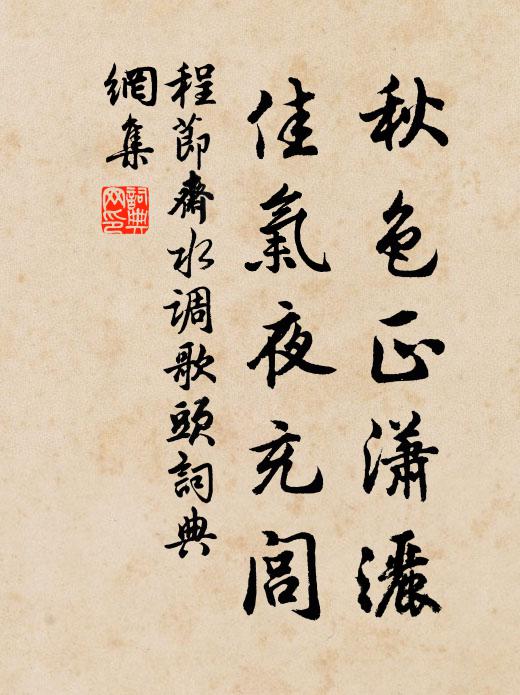 秋色正瀟灑
佳氣夜充閭
程節齋水调歌頭詞典
網集
詞典
网印